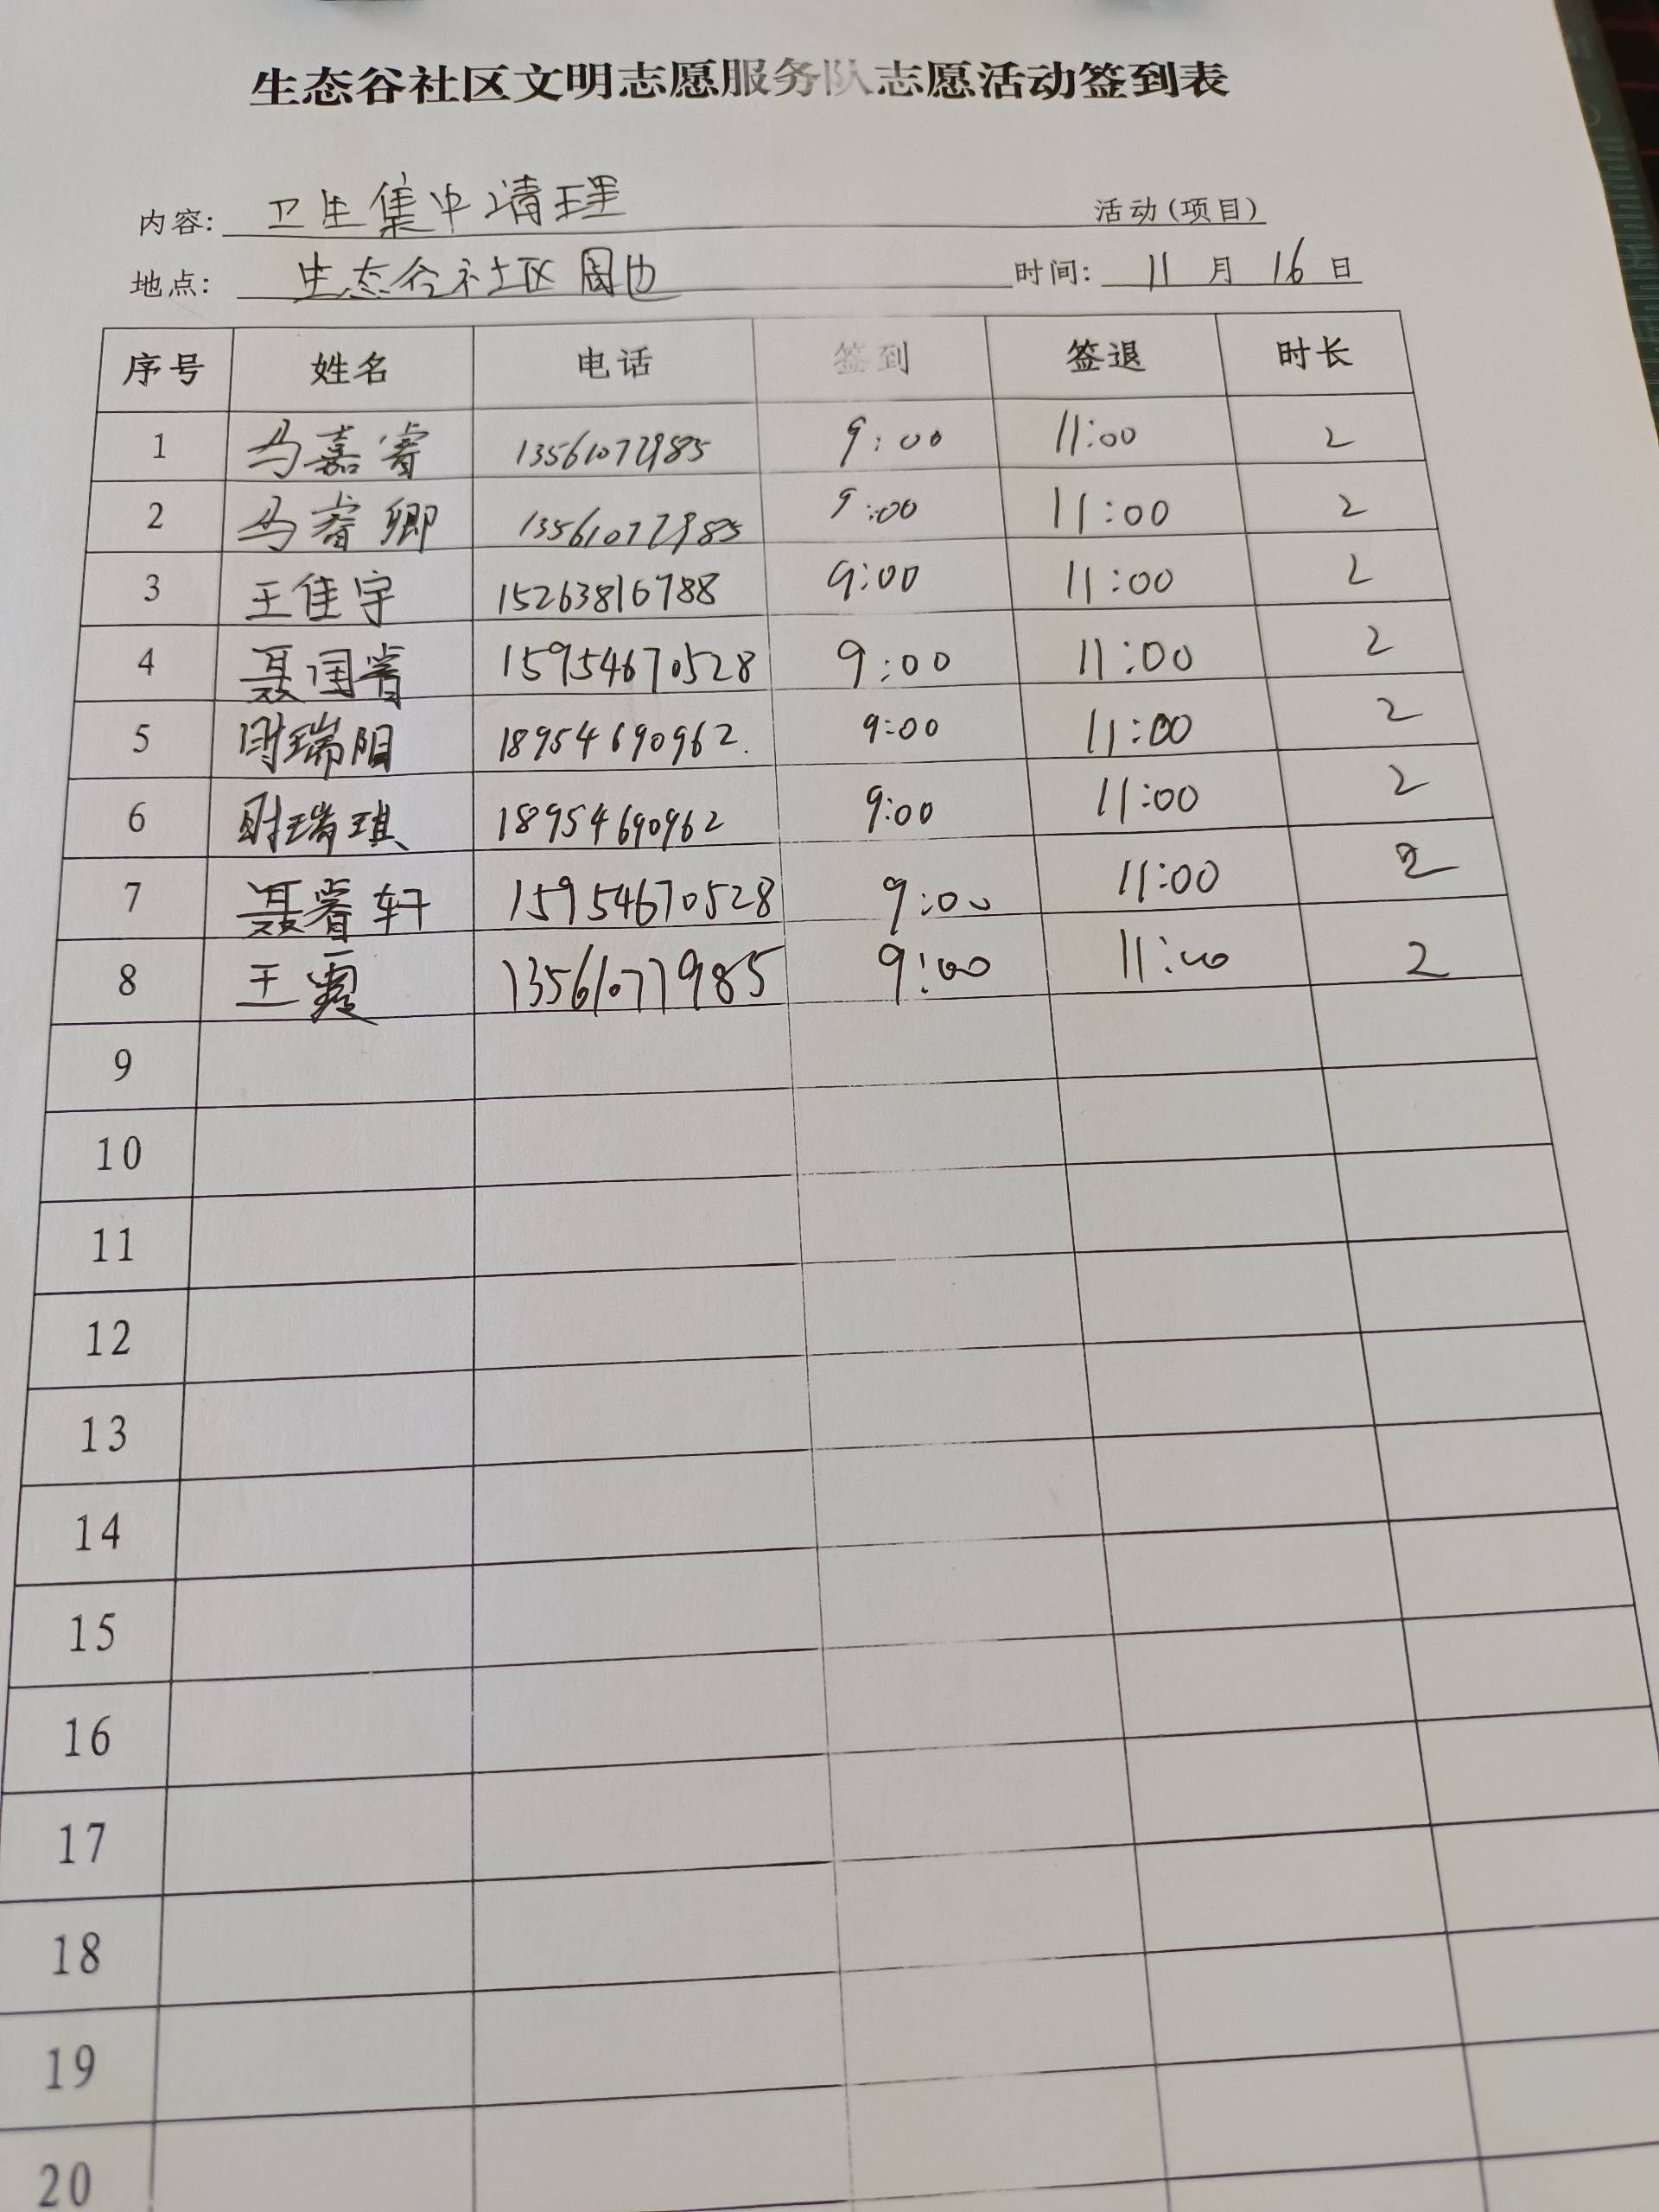 生态谷社区文明志愿服务队志愿活动签到表
内容: 卫生集中清理 活动(项目)
地点: 生态谷社区周边 时间: 11 月 16 日
序号 姓名 电话 签到 签退 时长
1 马嘉睿 9:00 11:00 2
2 马睿卿 9:00 11:00 2
3 王佳宇 15263816788 9:00 11:00 2
4 聂国睿 15954670528 9:00 11:00 2
5 瑞阳 18954690962. 9:00 11:00 2
6 瑞琪 18954690962 9:00 11:00 2
7 聂睿轩 15954670528 9:00 11:00 2
8 王霞 13561077985 9:00 11:00 2
9
10
11
12
13
14
15
16
17
18
19
20